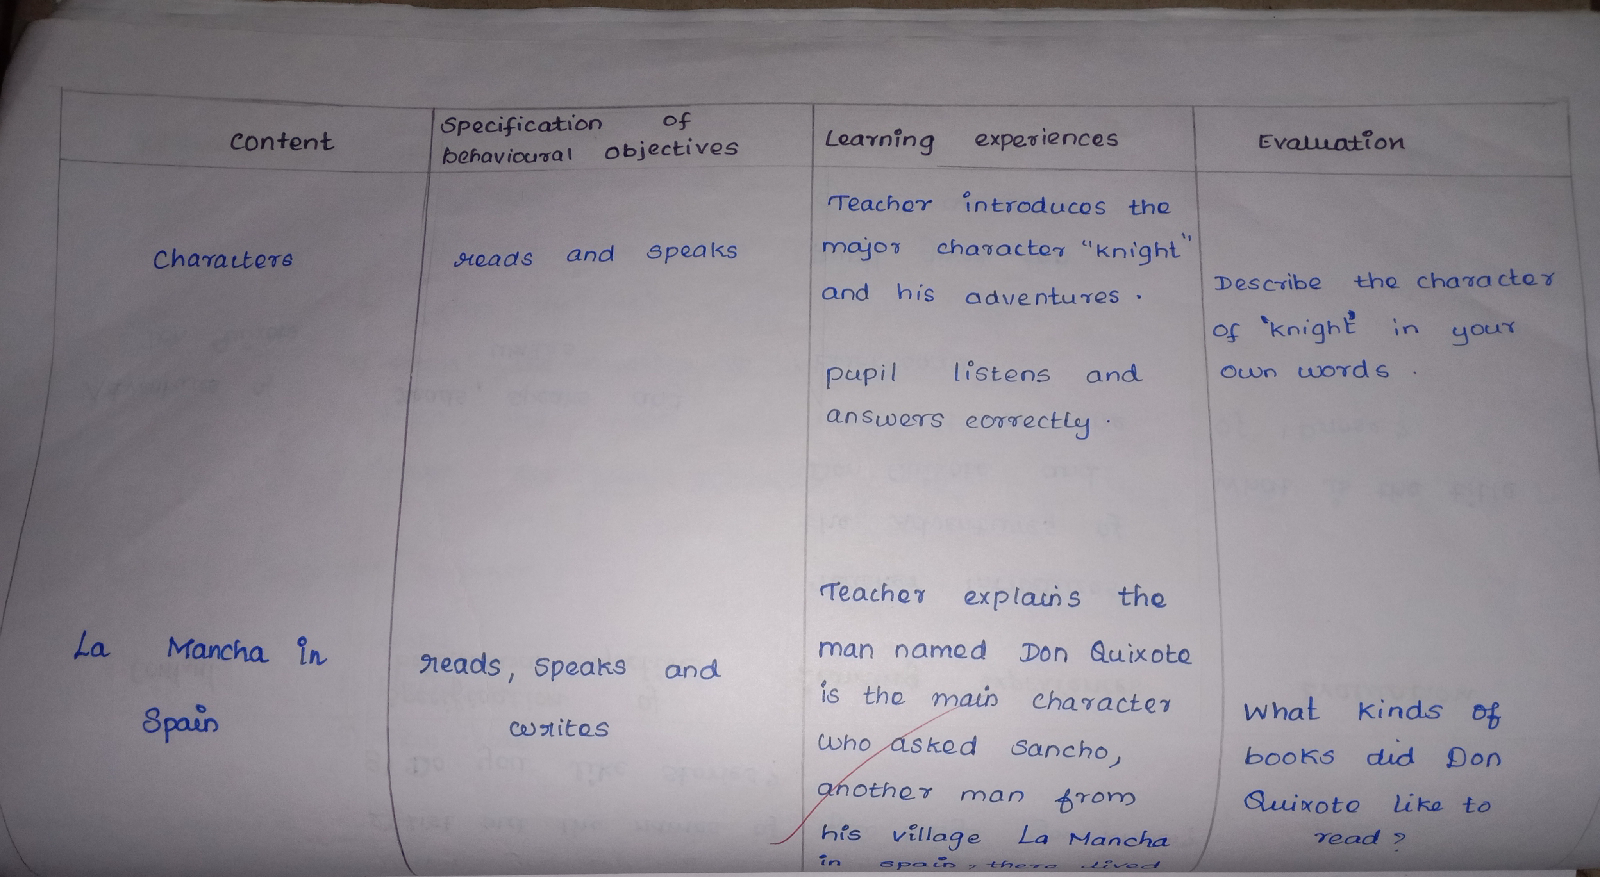 Content
Specification of
behavioural objectives
Learning experiences
Evaluation
Characters
reads and speaks
Teacher introduces the
major character "knight"
and his adventures.
pupil listens and
answers correctly.
Describe the character
of "knight" in your
own words.
La Mancha in
Spain
reads, speaks and
writes
Teacher explains the
man named Don Quixote
is the main character
who asked Sancho,
another man from
his village La Mancha
in spain, there lived
What kinds of
books did Don
Quixote like to
read?